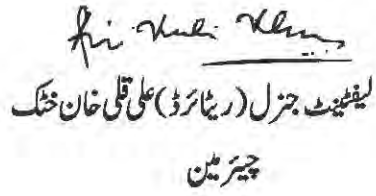 Ali Kuli Khan
لیفٹیننٹ جنرل (ریٹائرڈ) علی قلی خان خٹک
چیئرمین